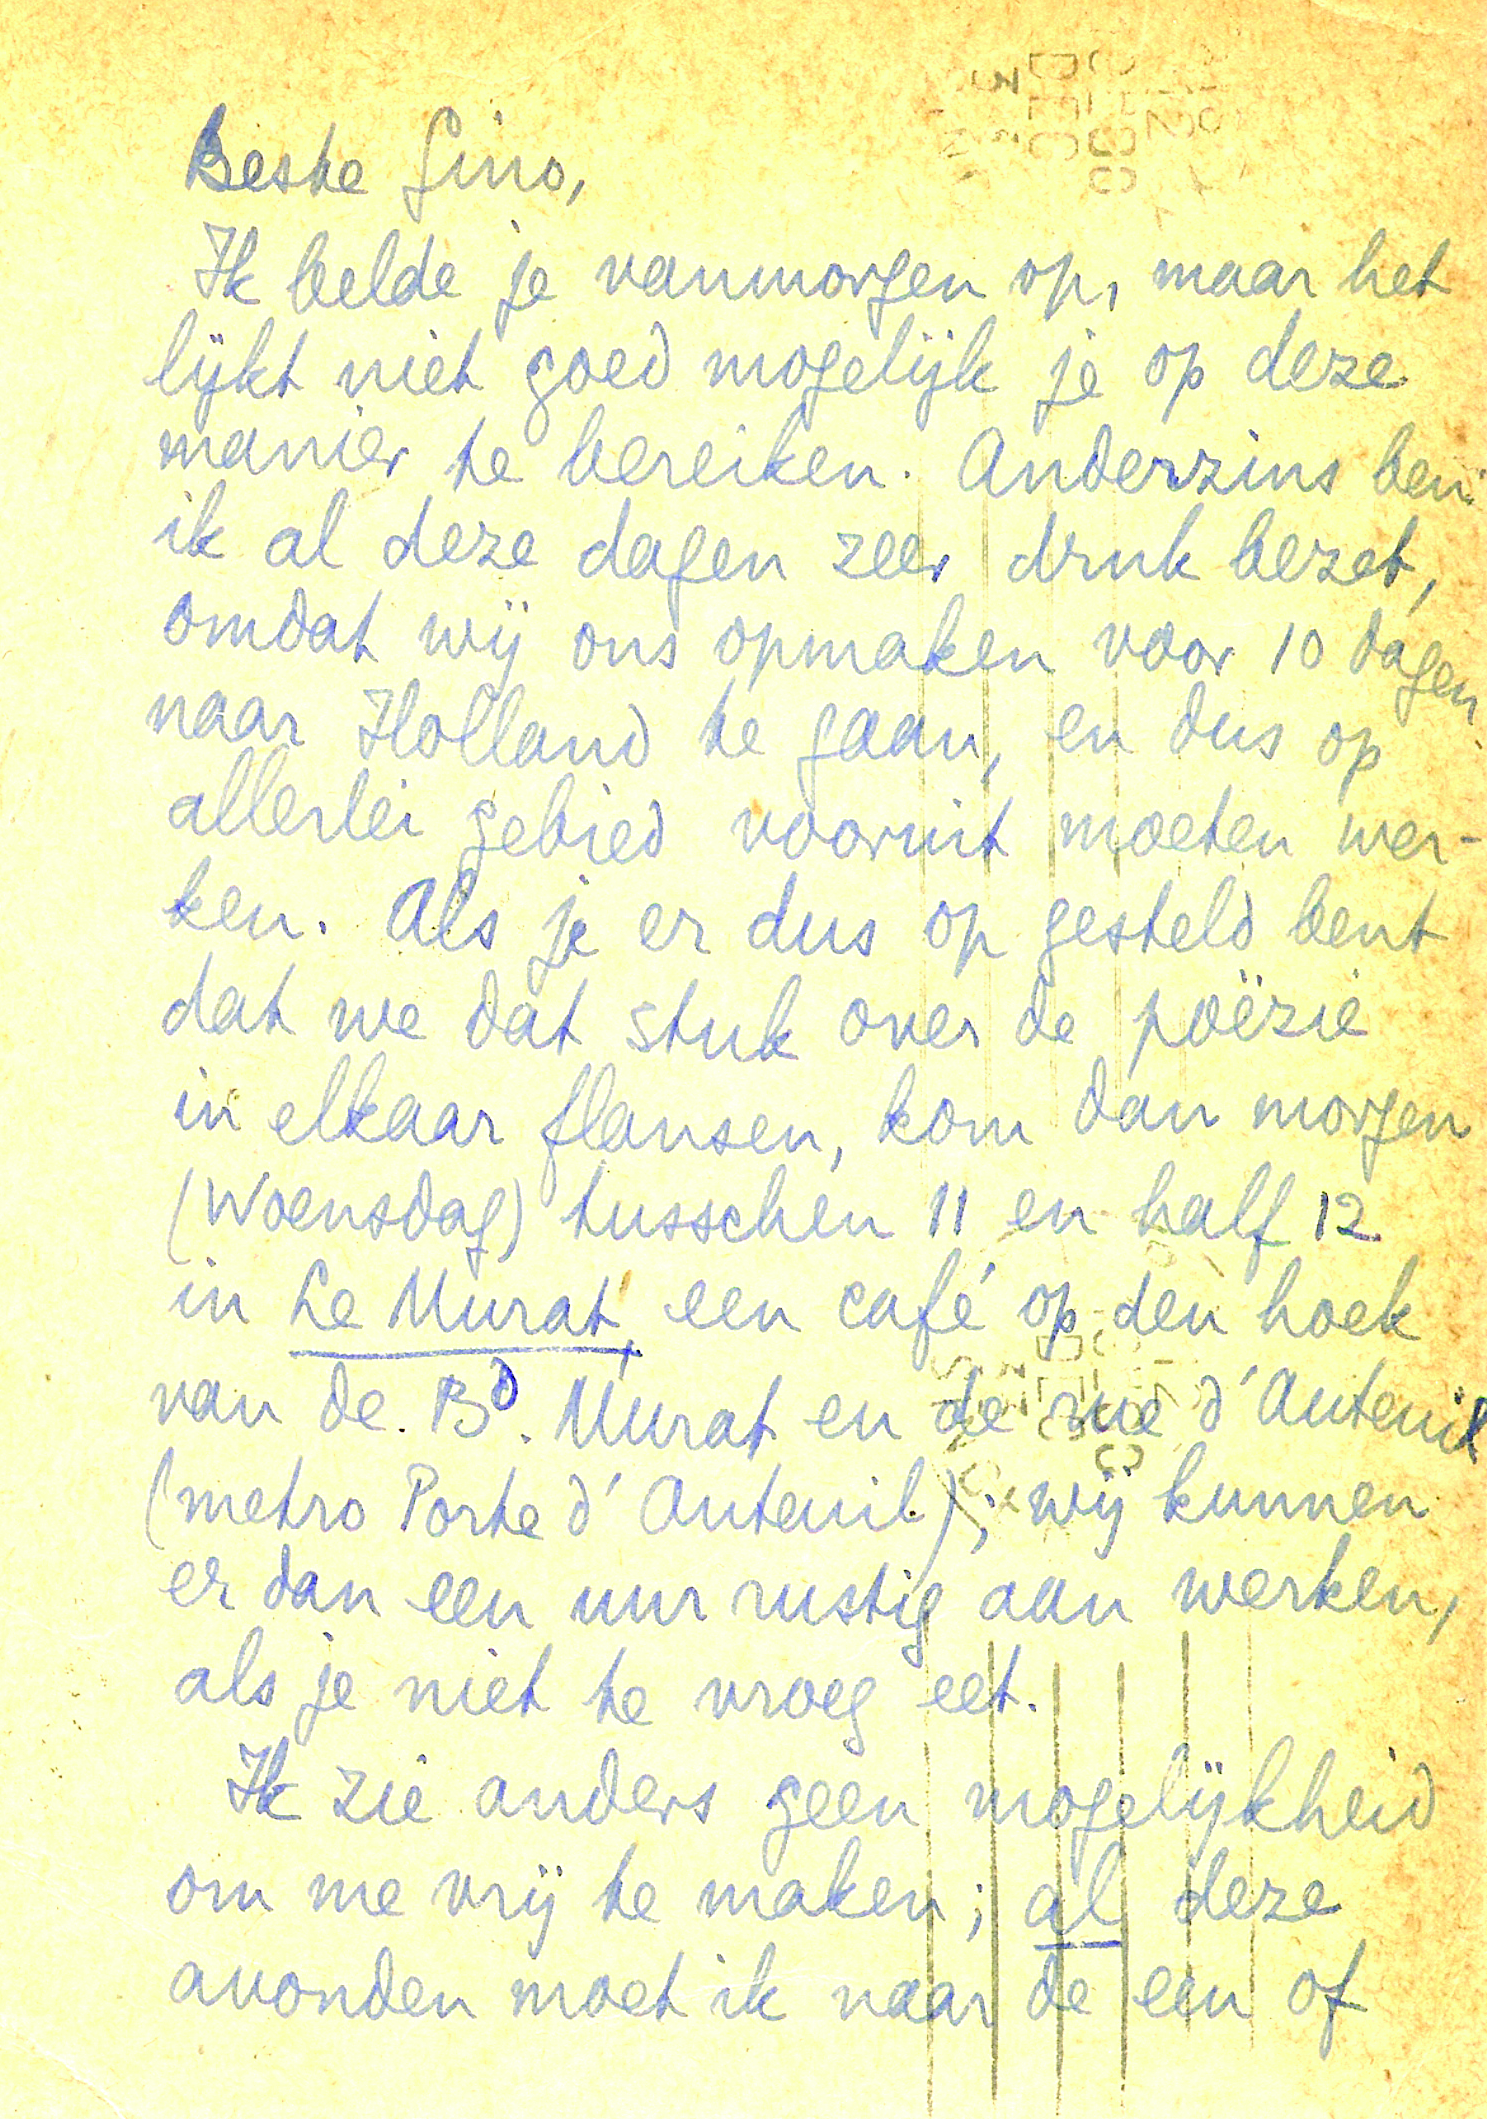 Beste Gino,
Ik belde je vanmorgen op, maar het
lijkt niet goed mogelijk je op deze
manier te bereiken. Anderzins ben
ik al deze dagen zeer druk bezet,
omdat wij ons opmaken voor 10 dagen
naar Holland te gaan, en dus op
allerlei gebied vooruit moeten wer-
ken. Als je er dus op gesteld bent
dat we dat stuk over de poëzie
in elkaar flansen, kom dan morgen
(Woensdag) tusschen 11 en half 12
in Le Murat, een café op den hoek
van de Bd. Murat en de rue d'Auteuil
(metro Porte d'Auteuil); wij kunnen
er dan een uur rustig aan werken,
als je niet te vroeg eet.
Ik zie anders geen mogelijkheid
om me vrij te maken; al deze
avonden moet ik naar de een of